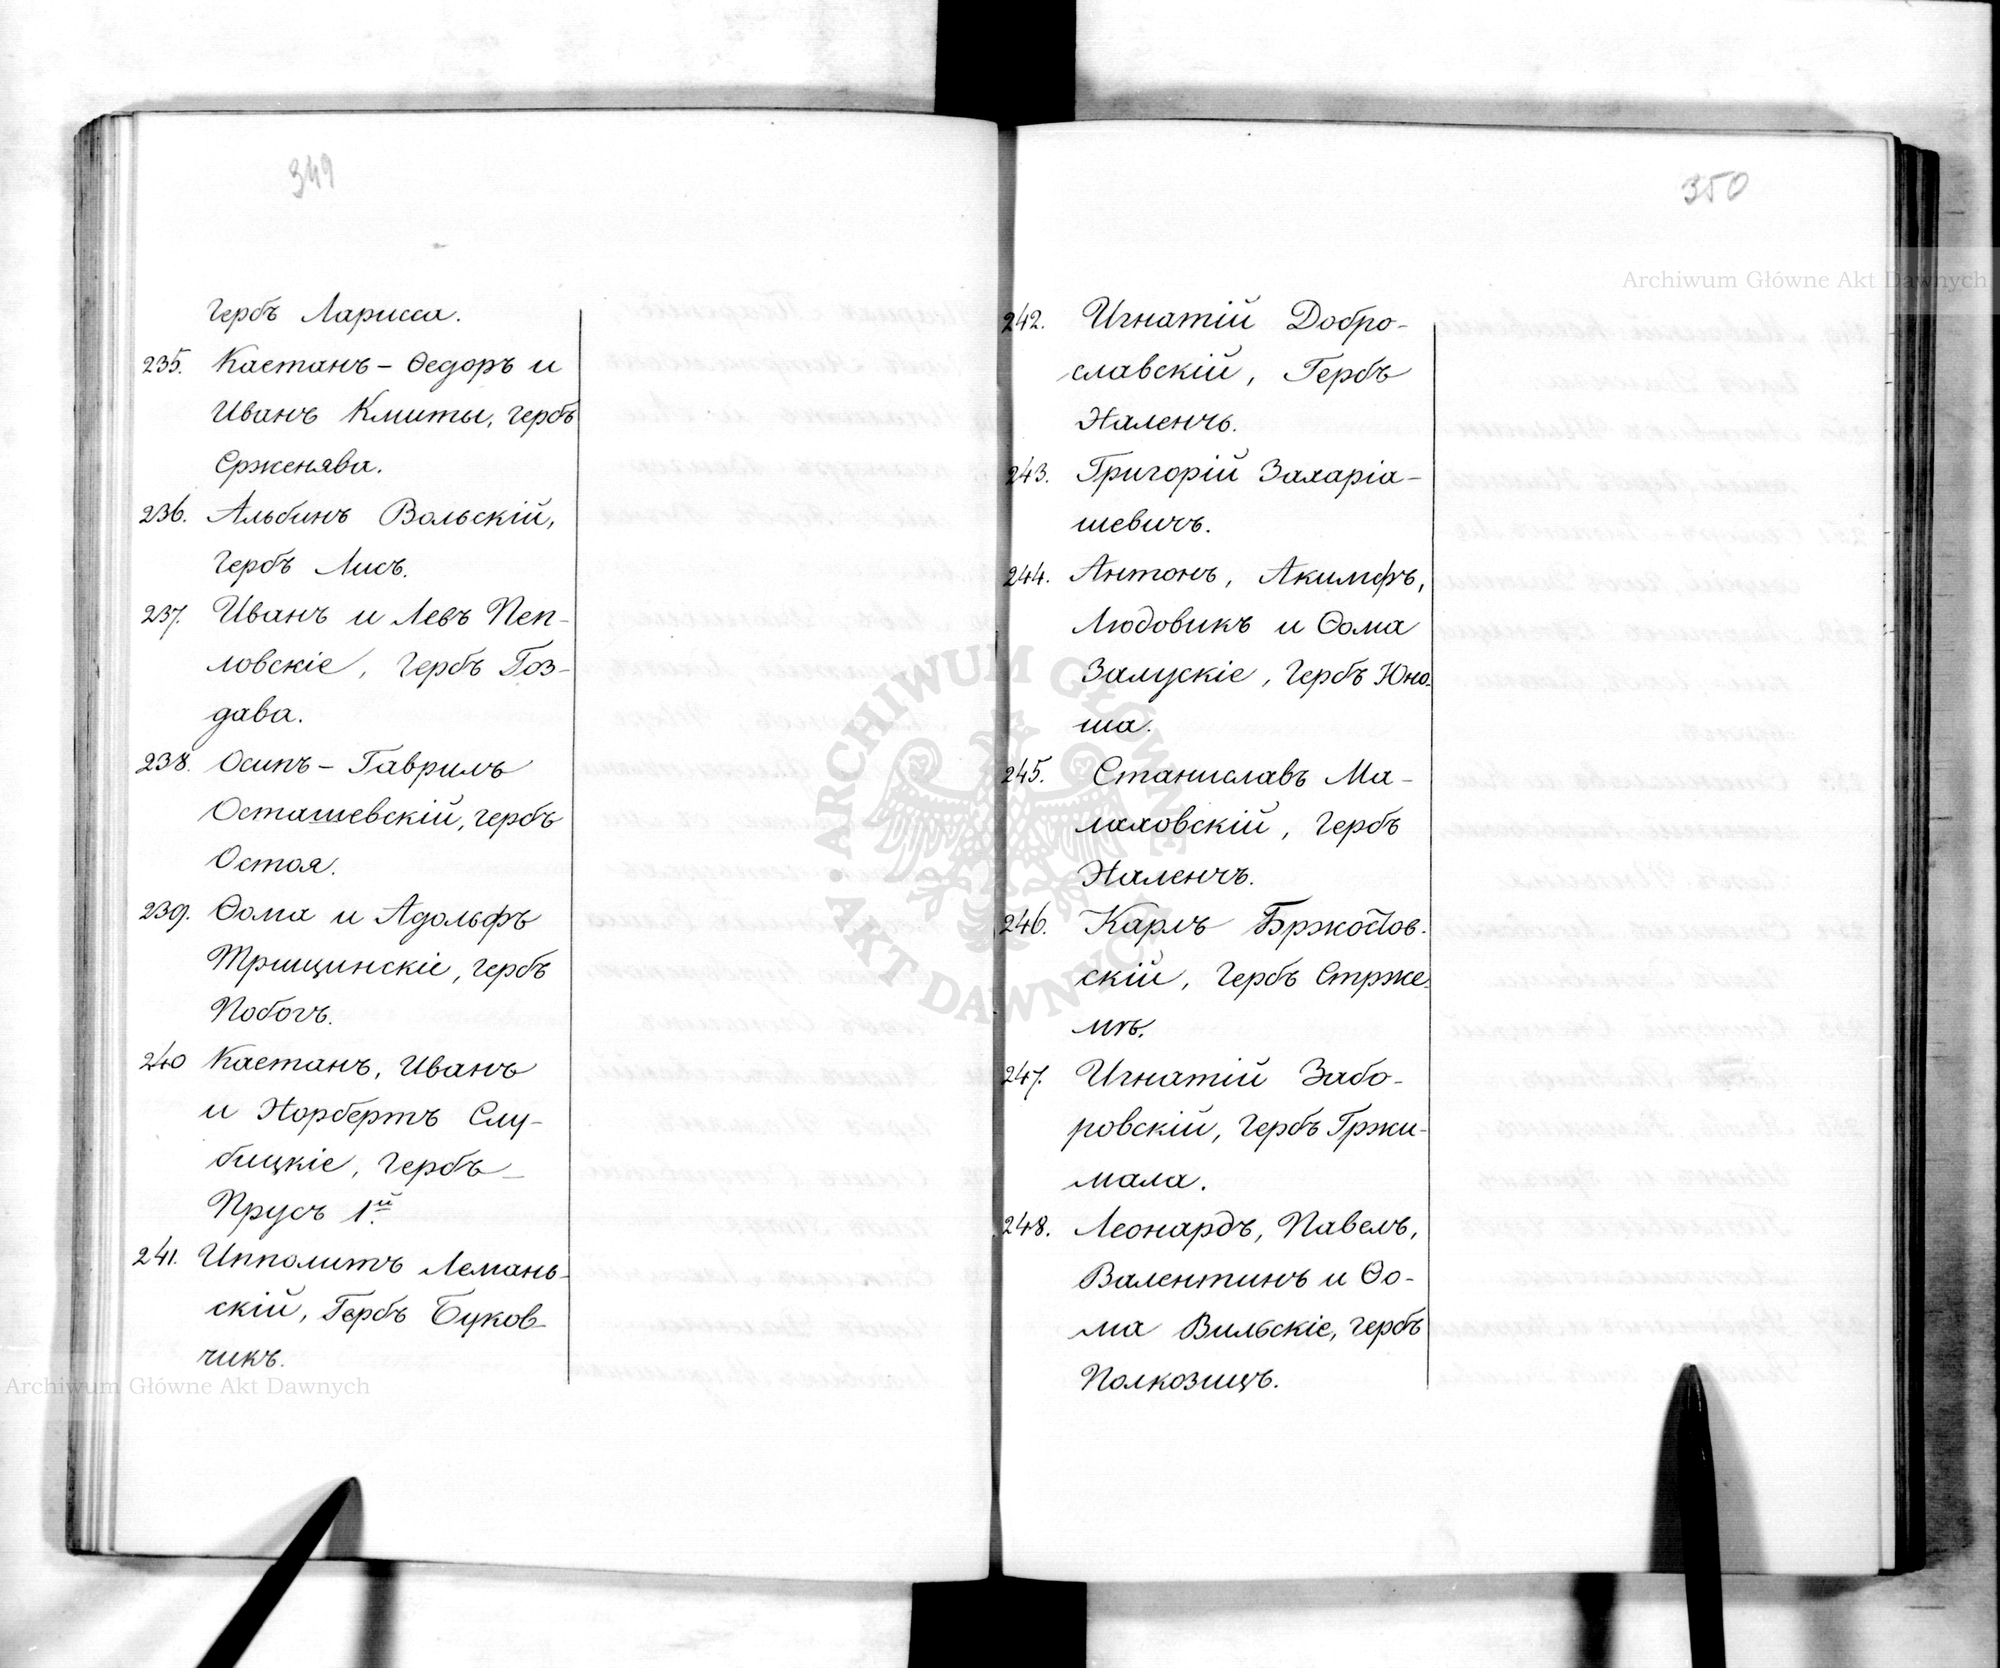 349
гербъ Ларисса.
235. Каетанъ – Ѳедоръ и
Иванъ Кмиты, гербъ
Срженява.
236. Альбинъ Вольскій,
гербъ Лисъ.
237. Иванъ и Левъ Пеп-
ловскіе, гербъ Гоз-
дава.
238. Осипъ – Гаврилъ
Осташевскій, гербъ
Остоя.
239. Ѳома и Адольфъ
Трищинскіе, гербъ
Побогъ.
240 Каетанъ, Иванъ
и Норбертъ Слу-
бицкіе, гербъ –
Прусъ 1й.
241. Ипполитъ Лемань-
скій, Гербъ Буков-
чикъ.
350
242. Игнатій Добро-
славскій, Гербъ
Наленчь.
243. Григорій Захаріа-
шевичъ.
244. Антонъ, Акимфъ,
Людовикъ и Ѳома
Залускіе, гербъ Юно-
ша.
245. Станиславъ Ма-
лаховскій, гербъ
Наленчъ.
246. Карлъ Бржостов-
скій, гербъ Стрже-
мѣ.
247. Игнатій Забо-
ровскій, гербъ Гржи-
мала.
248. Леонардъ, Павелъ,
Валентинъ и Ѳо-
ма Вильскіе, гербъ
Полкозицъ.
Archiwum Główne Akt Dawnych
ARCHIWUM GŁÓWNE AKT DAWNYCH
Archiwum Główne Akt Dawnych